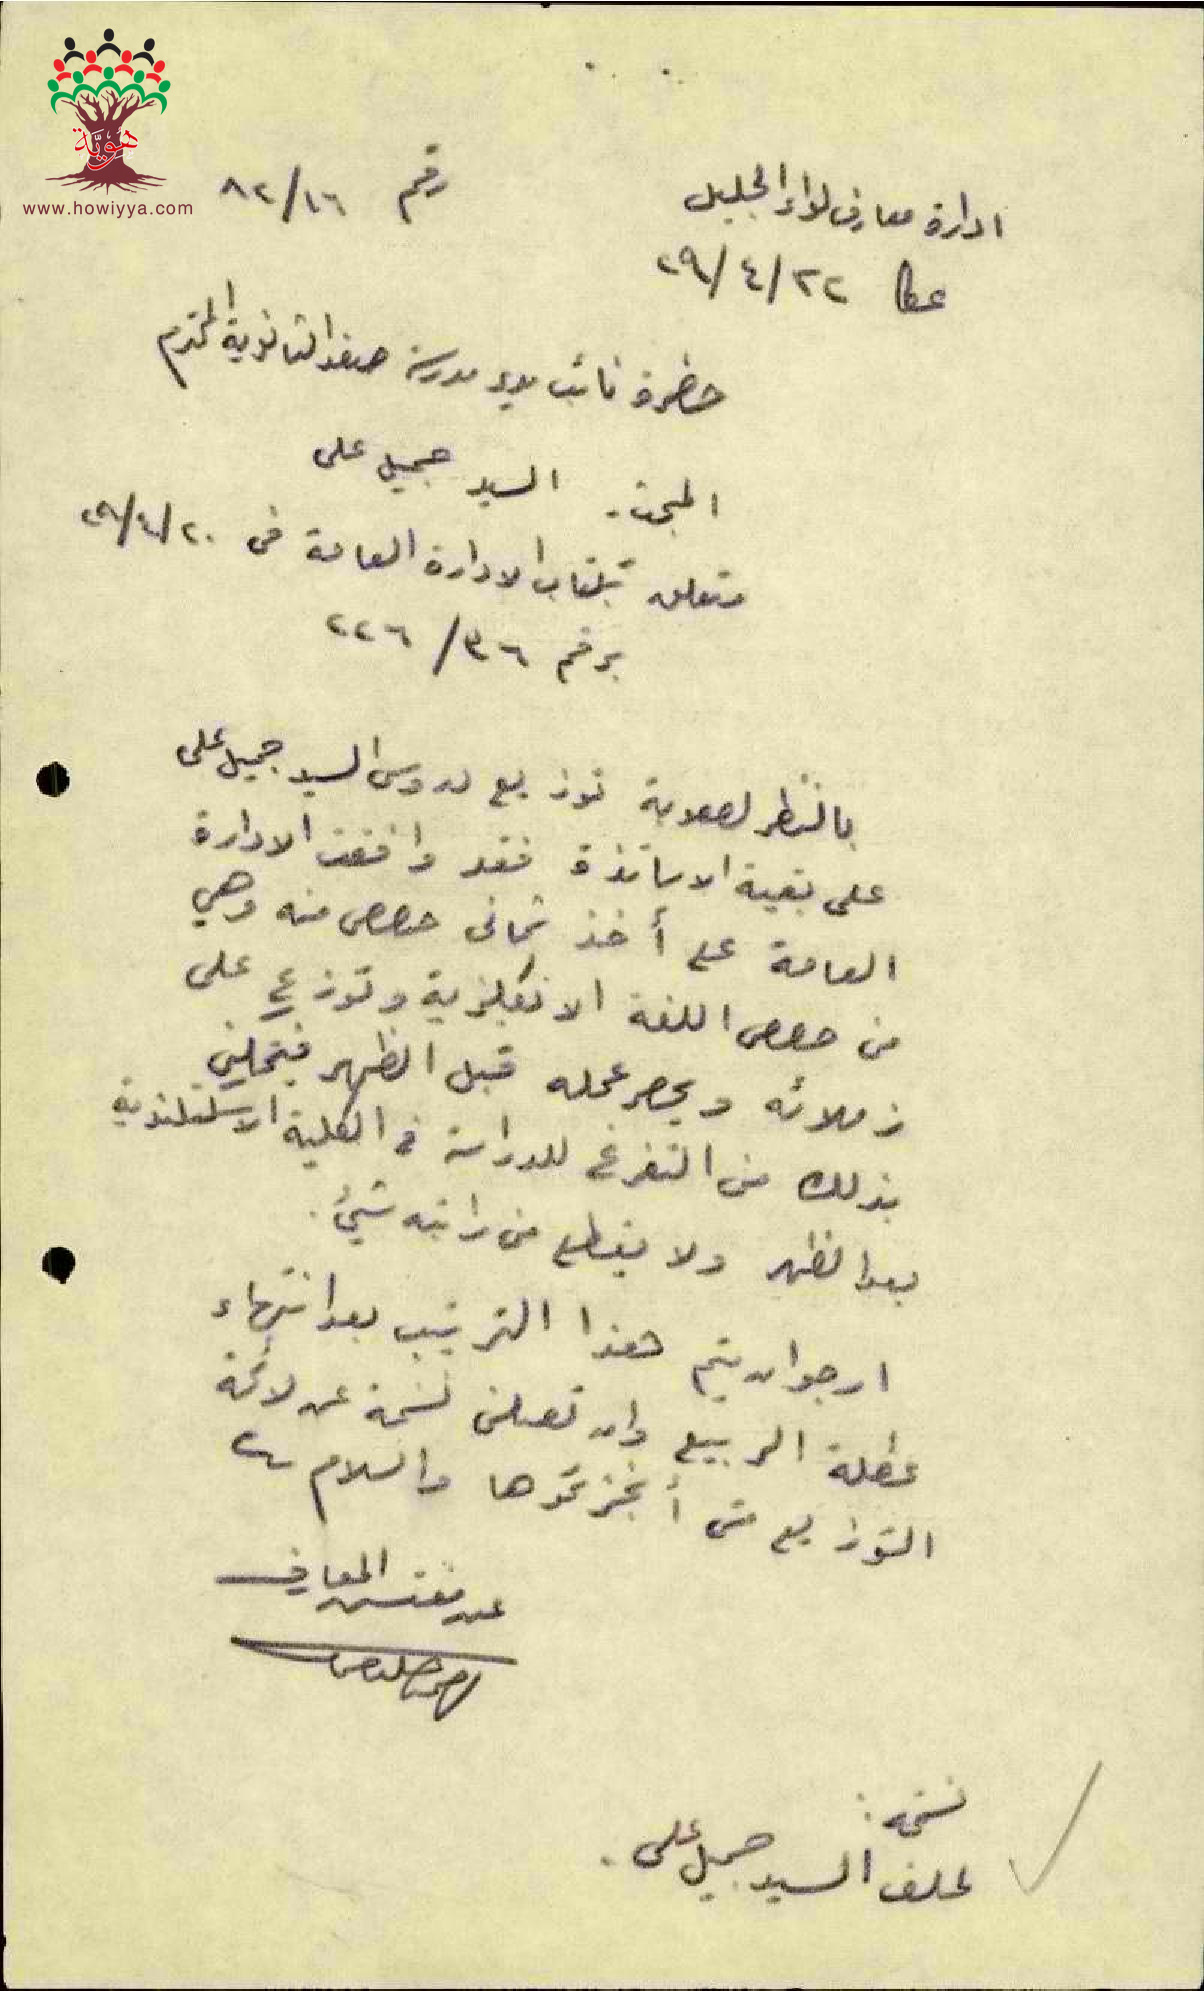 هوية
www.howiyya.com
ادارة معارف لواء الجليل
رقم ٨٢/١٦
عكا ٢٢/٤/٢٩
حضرة نائب مدير مدرسة صفد الثانوية المحترم
المبحث - السيد جميل علي
متعلق بكتاب الادارة العامة في ٢٠/٤/٢٩
برقم ٣٦/٢٢٦
بالنظر لصعوبة توزيع دروس السيد جميل علي
على بقية الاساتذة فقد وافقت الادارة
العامة على أخذ ثماني حصص منه وهي
من حصص اللغة الانكليزية وتوزع على
زملائه ويحصر عمله قبل الظهر فيتمكن
بذلك من التفرغ للدراسة في الكلية الاسكتلندية
بعد الظهر ولا يقطع من راتبه شيئ.
ارجو ان يتم هذا الترتيب بعد انتهاء
عطلة الربيع وان تصلني نسخة عن لائحة
التوزيع متى أنجزتموها والسلام
عن مفتش المعارف
نسخة:
لملف السيد جميل علي.